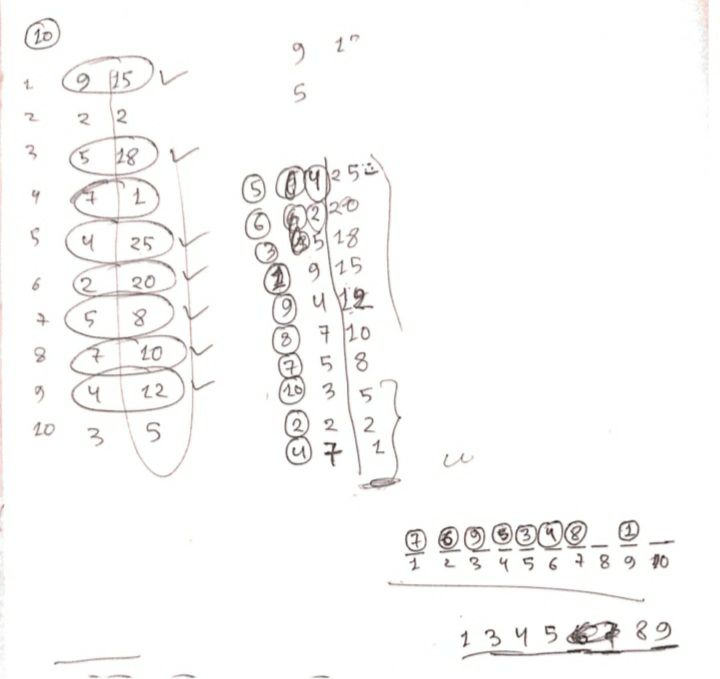 10
9 1
5
1 9 15 ✓
2 2 2
3 5 18 ✓
4 7 1
5 4 25 ✓
6 2 20 ✓
7 5 8 ✓
8 7 10 ✓
9 4 12 ✓
10 3 5
5 4 25
6 2 20
3 5 18
1 9 15
9 4 12
8 7 10
7 5 8
10 3 5
2 2 2
4 7 1
7 6 9 5 3 4 8 _ 1 _
1 2 3 4 5 6 7 8 9 10
1 3 4 5 8 9